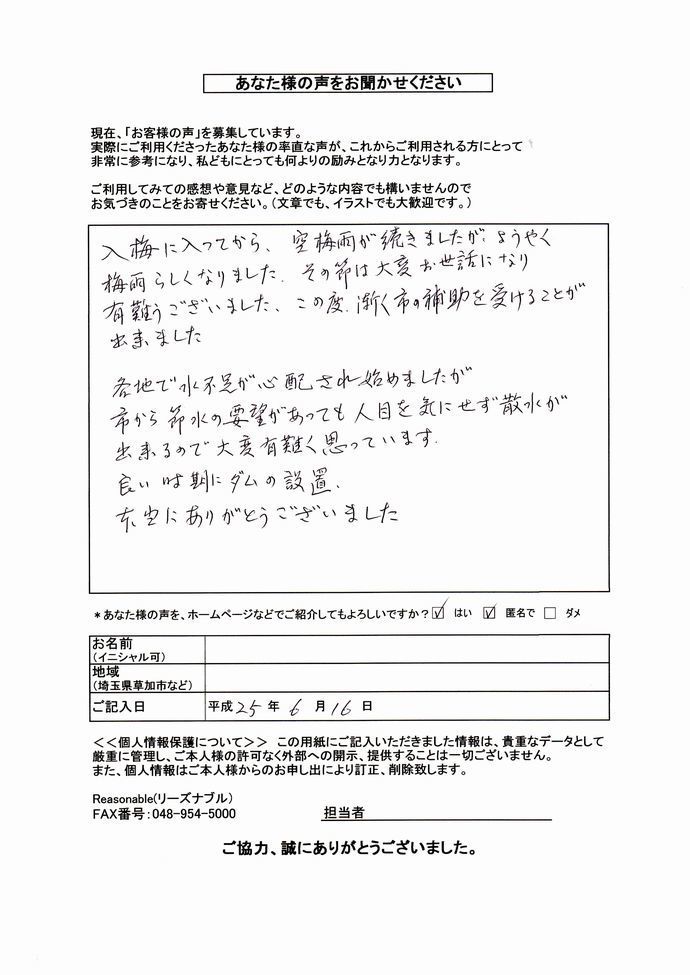 あなた様の声をお聞かせください
現在、「お客様の声」を募集しています。
実際にご利用くださったあなた様の率直な声が、これからご利用される方にとって
非常に参考になり、私どもにとっても何よりの励みとなり力となります。
ご利用してみての感想や意見など、どのような内容でも構いませんので
お気づきのことをお寄せください。(文章でも、イラストでも大歓迎です。)
入梅に入ってから、空梅雨が続きましたが、ようやく
梅雨らしくなりました。その節は大変お世話になり
有難うございました、この度、漸く市の補助を受けることが
出来ました
各地で水不足が心配され始めましたが
市から節水の要望があっても人目を気にせず散水が
出来るので大変有難く思っています。
良い時期にダムの設置、
本当にありがとうございました
*あなた様の声を、ホームページなどでご紹介してもよろしいですか?☑ はい ☑ 匿名で □ ダメ
お名前
(イニシャル可)
地域
(埼玉県草加市など)
ご記入日 平成25年6月16日
<<個人情報保護について>> この用紙にご記入いただきました情報は、貴重なデータとして
厳重に管理し、ご本人様の許可なく外部への開示、提供することは一切ございません。
また、個人情報はご本人様からのお申し出により訂正、削除致します。
Reasonable(リーズナブル)
FAX番号:048-954-5000 担当者
ご協力、誠にありがとうございました。